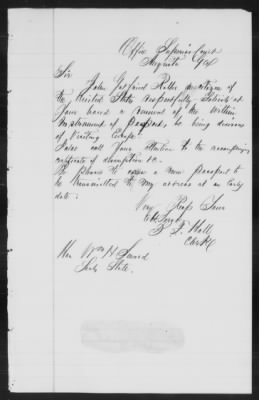 Office Superior Court
Augusta Ga
Sir
John Gotfried a citizen of
the United States respectfully solicits at
your hand a renewal of the within
instrument of passport, he being desirous
of Visiting Europe.
I also call your attention to the accompanying
certificate of description &c.
Be pleased to cause a new passport to
be transmitted to my address at an early
date.
Very Resp Your
Ob Servt
Hall
Clerk
Hon Wm H Seward
Secty State.